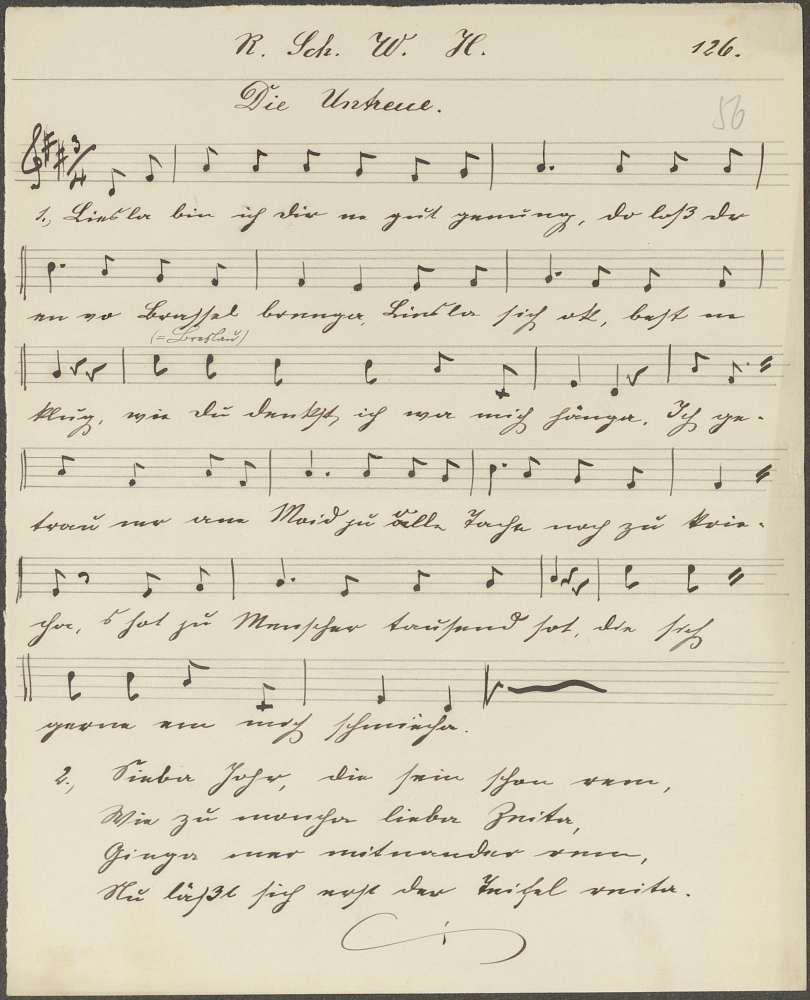 R. Sch. W. H. 126.
Die Untreue.
56
3/4
1., Liesla bin ich dir ne gut genung, do loß dr
en vo Brassel brenga, Liesla sich ok, best ne
(= Breslau)
klug, wie du denkst, ich war mich hänga. Ich ge-
trau mer ane Moid zu olle Tache noch zu krie-
cha, 's hot zu Menscher tausend sot, die sich
gerne em mich schmiecha.
2., Sieba Johr, die sein schon rem,
Wie zu moncha lieba Zeita,
Ginga mer mitnander rem,
Nu läßt sich erst der Teifel reita.